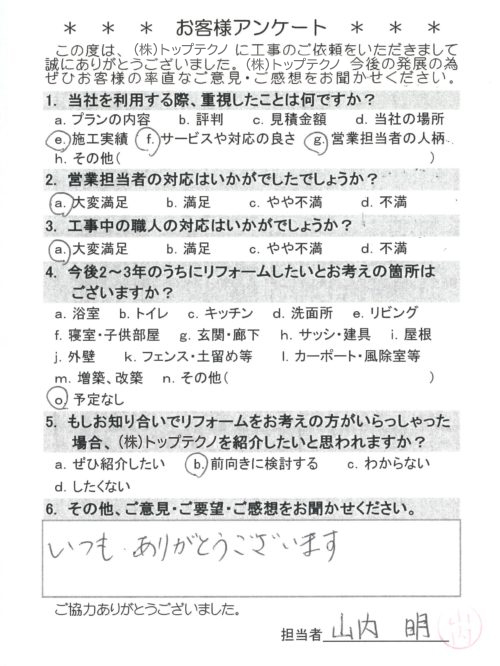 ＊ ＊ ＊ お客様アンケート ＊ ＊ ＊
この度は、(株)トップテクノ に工事のご依頼をいただきまして
誠にありがとうございました。(株)トップテクノ 今後の発展の為
ぜひお客様の率直なご意見・ご感想をお聞かせください。
1. 当社を利用する際、重視したことは何ですか？
a. プランの内容 b. 評判 c. 見積金額 d. 当社の場所
e. 施工実績 f. サービスや対応の良さ g. 営業担当者の人柄
h. その他( )
2. 営業担当者の対応はいかがでしたでしょうか？
a. 大変満足 b. 満足 c. やや不満 d. 不満
3. 工事中の職人の対応はいかがでしょうか？
a. 大変満足 b. 満足 c. やや不満 d. 不満
4. 今後2～3年のうちにリフォームしたいとお考えの箇所は
ございますか？
a. 浴室 b. トイレ c. キッチン d. 洗面所 e. リビング
f. 寝室・子供部屋 g. 玄関・廊下 h. サッシ・建具 i. 屋根
j. 外壁 k. フェンス・土留め等 l. カーポート・風除室等
m. 増築、改築 n. その他( )
o. 予定なし
5. もしお知り合いでリフォームをお考えの方がいらっしゃった
場合、(株)トップテクノを紹介したいと思われますか？
a. ぜひ紹介したい b. 前向きに検討する c. わからない
d. したくない
6. その他、ご意見・ご要望・ご感想をお聞かせください。
いつも ありがとうございます
ご協力ありがとうございました。
担当者 山内 明